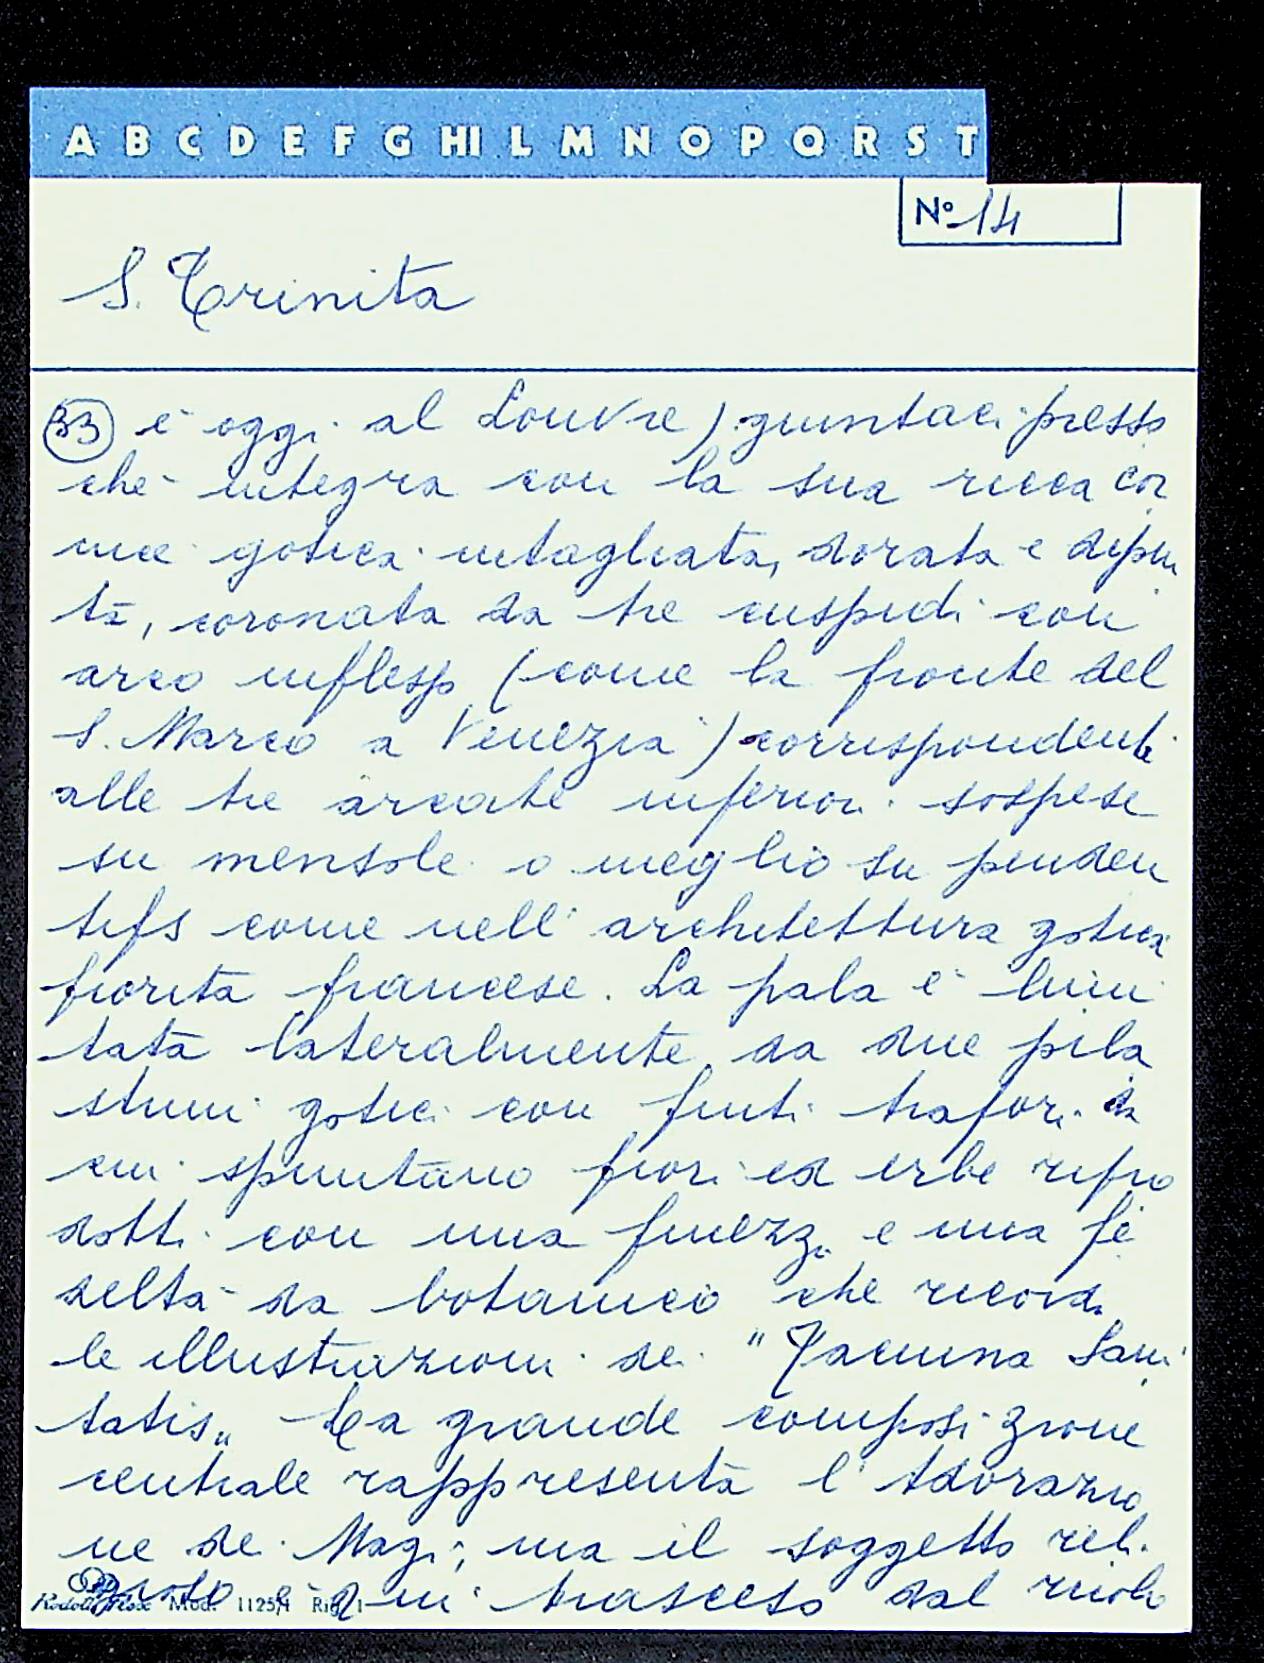 A B C D E F G HI L M N O P Q R S T
N° 14
S. Trinita
33 è oggi al Louvre) giuntaci presso
chè integra con la sua ricca cor
nice gotica intagliata, dorata e dipin
ta, coronata da tre cuspidi con
arco inflesso (come la fronte del
S. Marco a Venezia) corrispondenti
alle tre arcate inferiori sospese
su mensole o meglio su penden
tifs come nell'architettura gotica
fiorita francese. La pala è limi
tata lateralmente da due pila
strini gotici con finti trafori da
cui spuntano fiori ed erbe ripro
dotti con una finezza e una fe
deltà da botanico che ricorda
le illustrazioni dei "Tacuina Sani
tatis„ La grande composizione
centrale rappresenta l'Adorazio
ne dei Magi; ma il soggetto reli
gioso è qui trasceso dal
Mod. 1125/1 Rig. 1